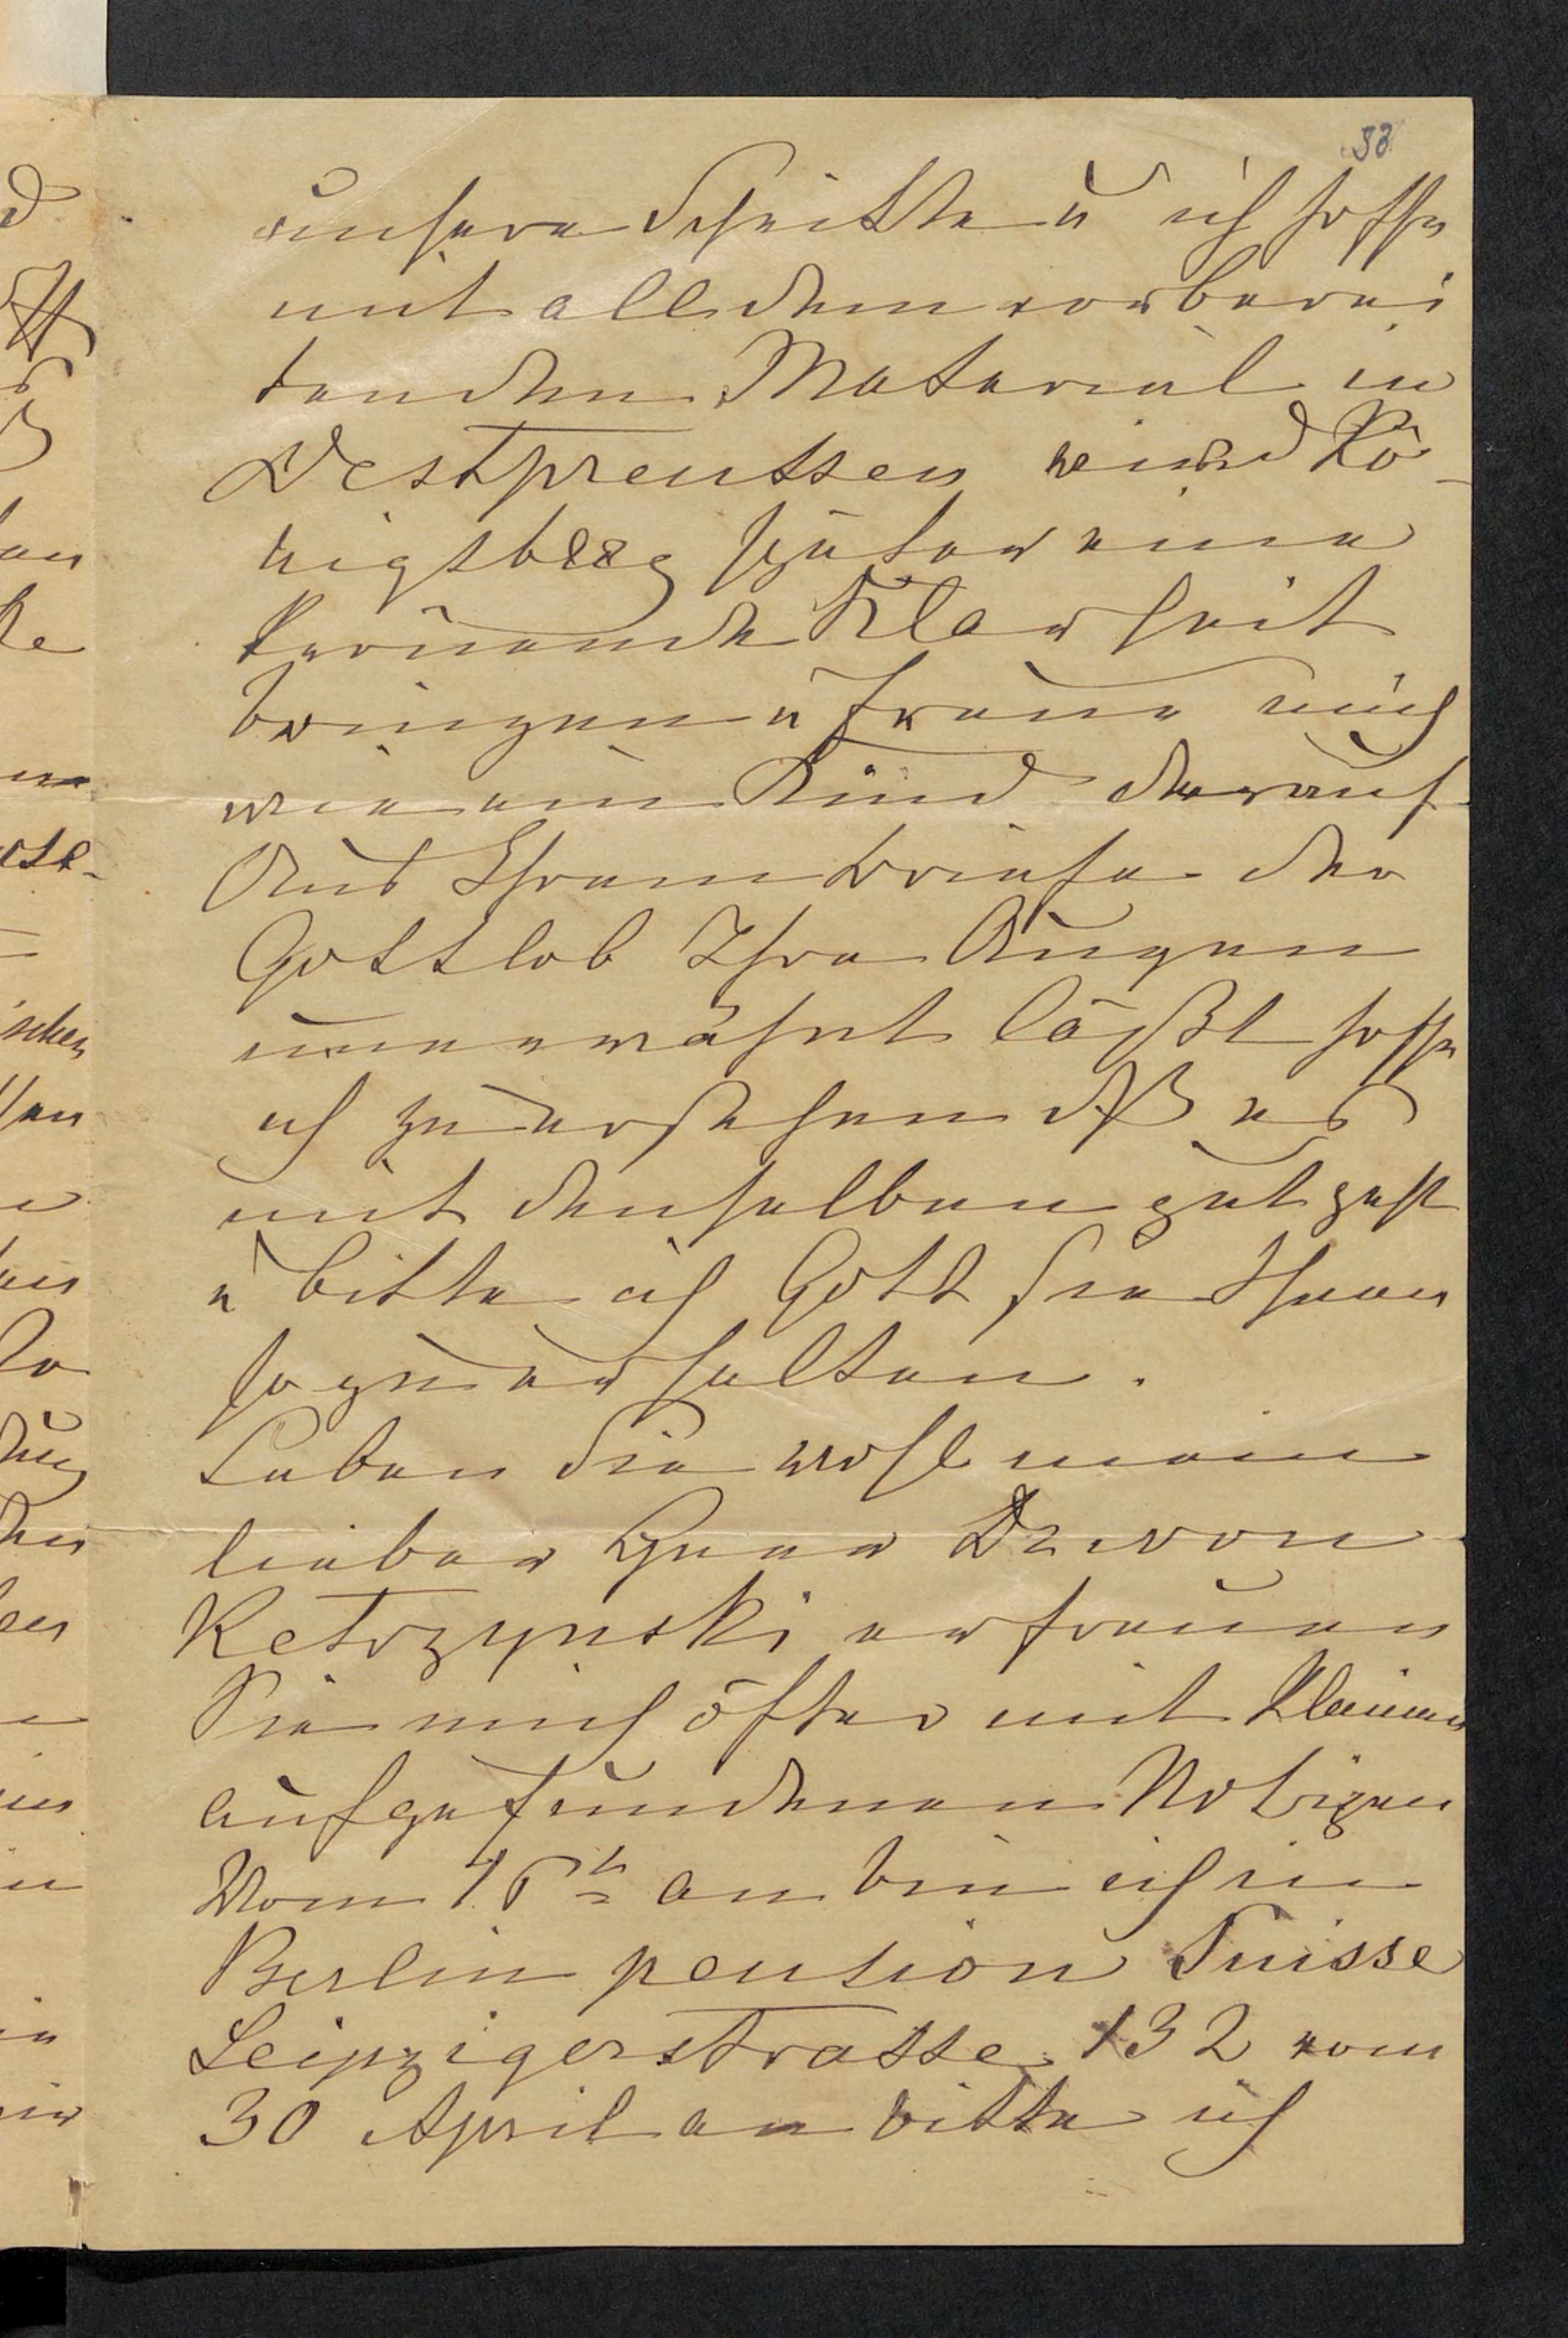 33
unsere Schritte u ich hoffe
mit all dem vorberei
tenden Material in
Westpreussen wird Kö-
nigsberg später eine
krönende Klarheit
bringen u freue mich
wie ein Kind darauf
Aus Ihrem Briefe der
Gottlob Ihre Augen
unerwähnt läßt hoffe
ich zu ersehen dß es
mit denselben gut geht
u bitte ich Gott sie Ihnen
so zu erhalten.
Leben Sie wohl mein
lieber Herr Dr von
Ketrzynski erfreuen
Sie mich öfter mit kleinen
aufgefundenen Notizen
Vom 16t an bin ich in
Berlin pension Suisse
Leipzigerstrasse 132 vom
30 April an bitte ich